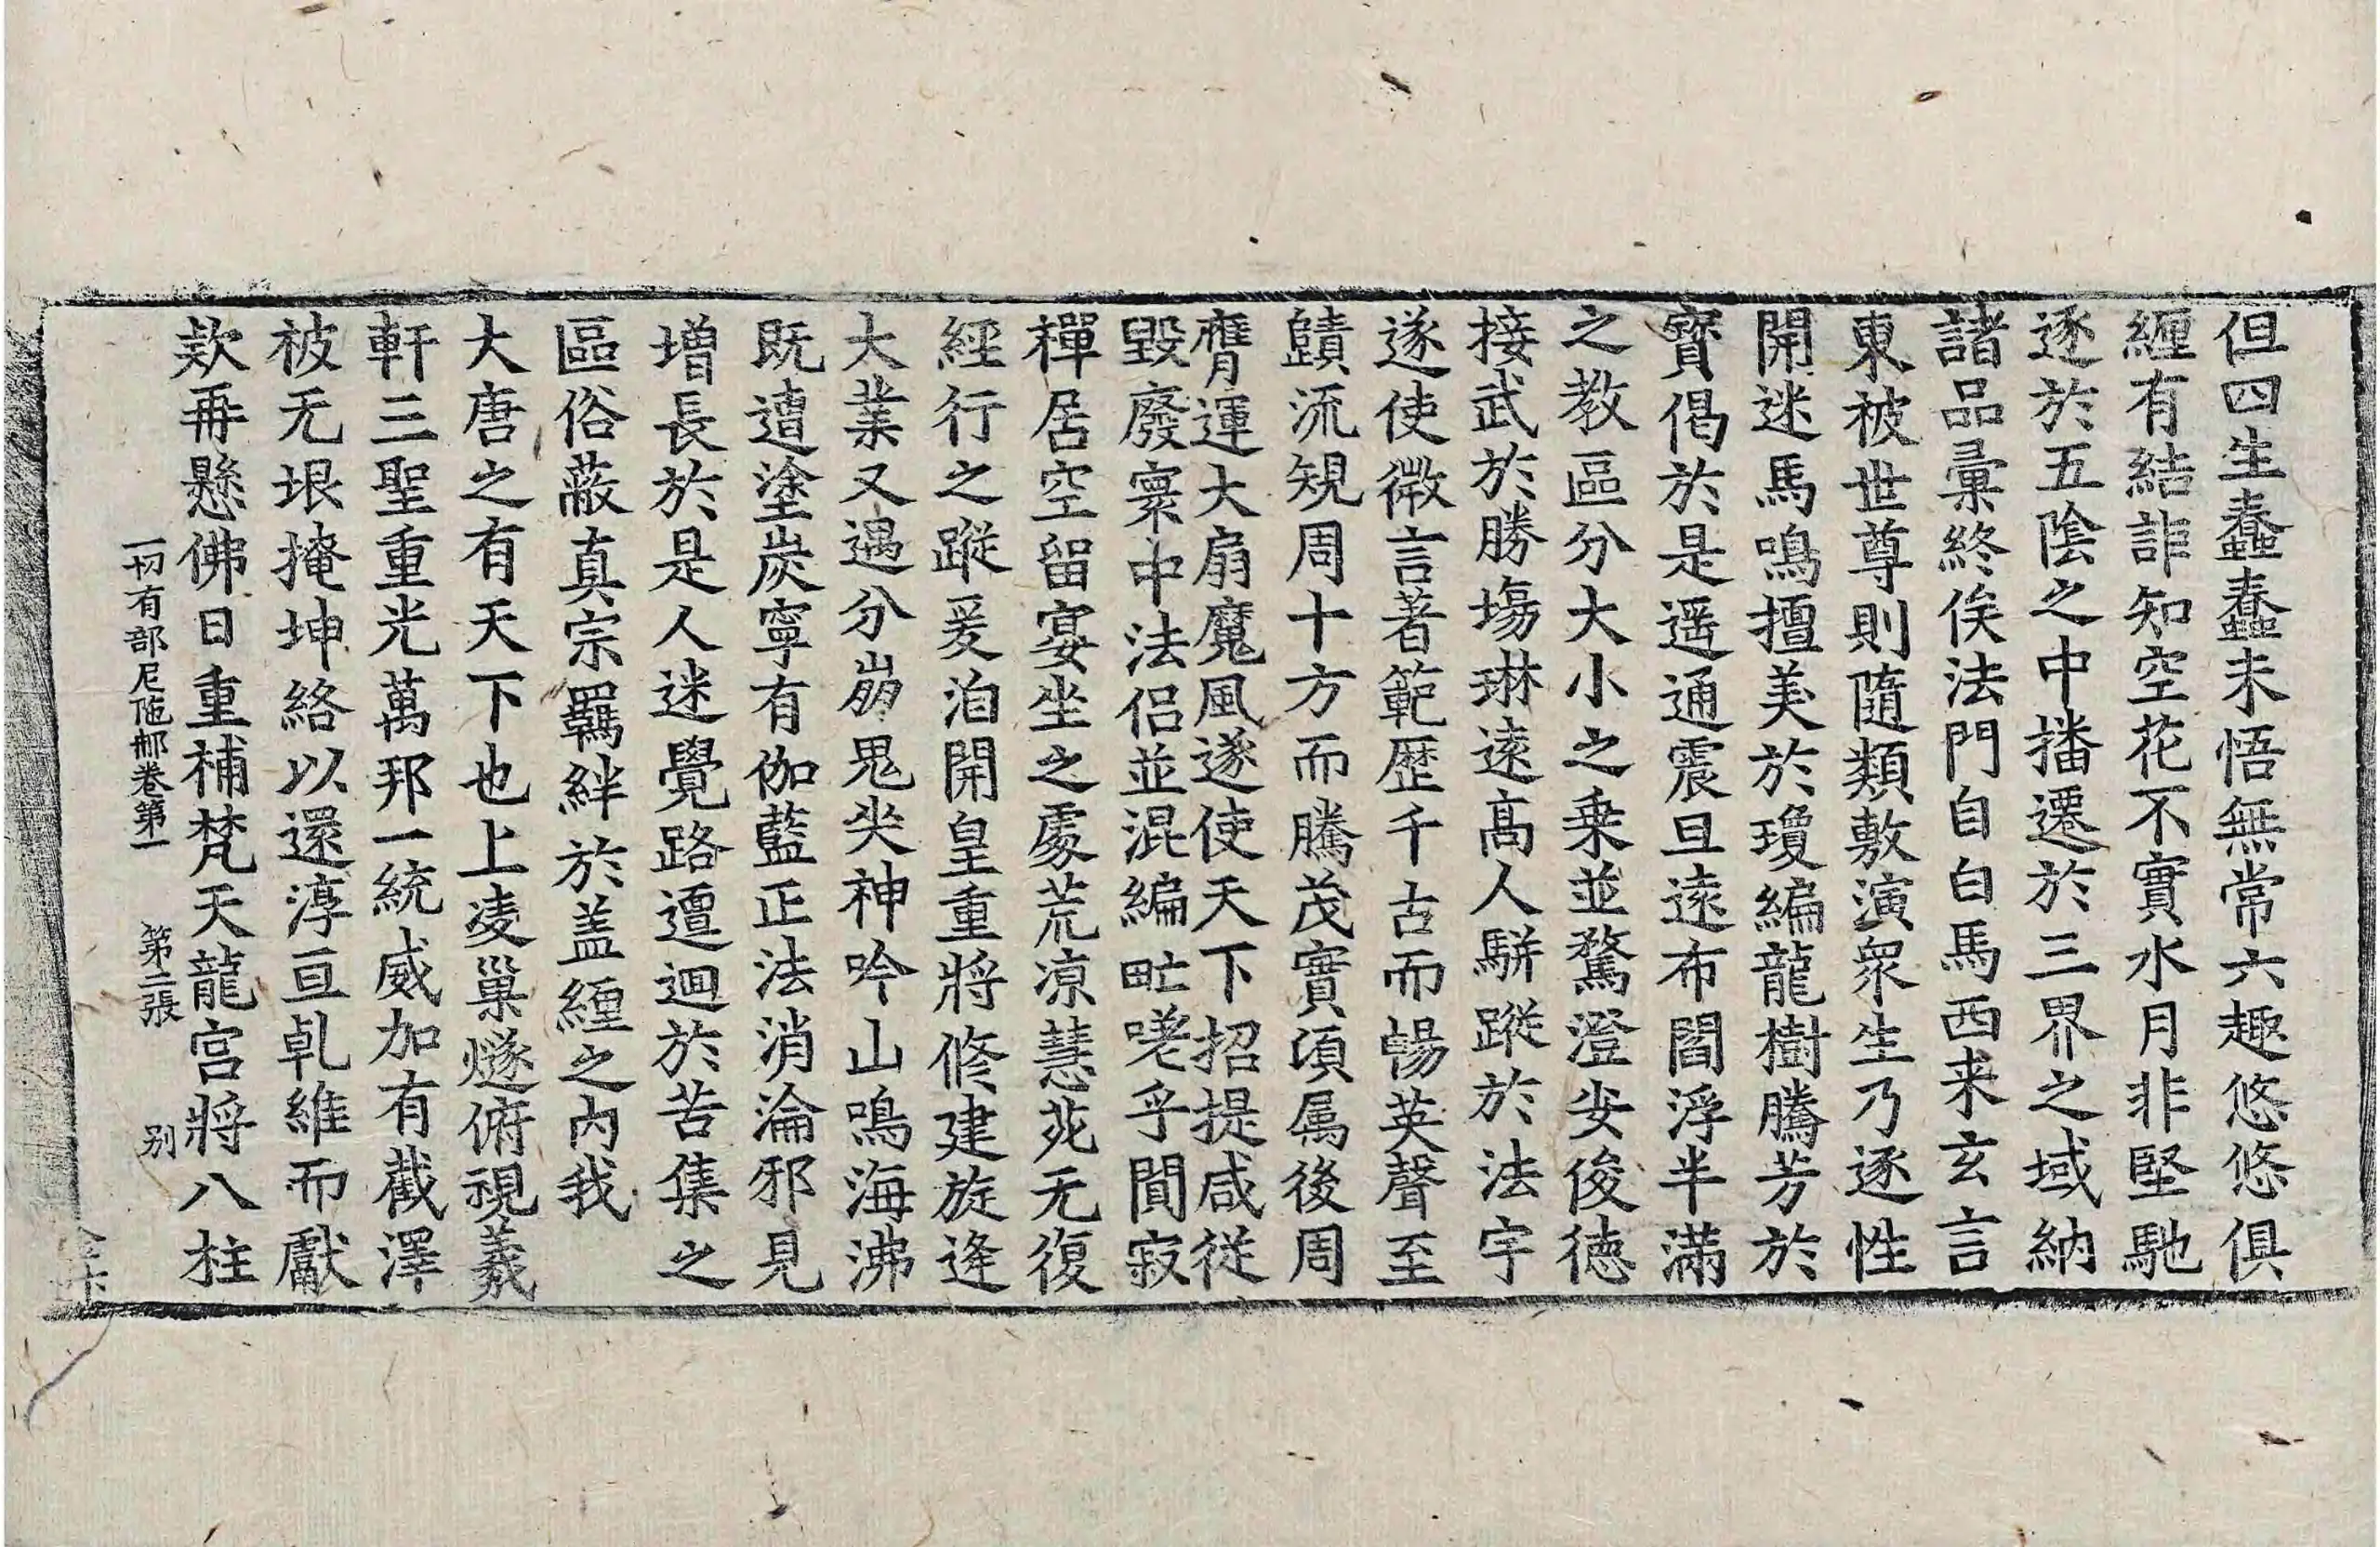 但四生蠢蠢未悟無常六趣悠悠俱
纒有結詎知空花不實水月非堅馳
逐於五陰之中播遷於三界之域納
諸品彙終俟法門自白馬西来玄言
東被世尊則隨類敷演衆生乃逐性
開迷馬鳴擅美於瓊編龍樹騰芳於
寳偈於是遥通震旦逺布閻浮半滿
之教區分大小之乗並騖澄安俊徳
接武於勝場琳逺髙人駢蹤於法宇
遂使微言著範歷千古而暢英聲至
賾流規周十方而騰茂實湏属後周
膺運大扇魔風遂使天下招提咸従
毀廢寰中法侣並混編甿嗟乎閴寂
禪居空留宴坐之處荒凉慧菀无復
經行之蹤爰洎開皇重將修建旋逄
大業又遇分崩鬼哭神吟山鳴海沸
既遭塗炭寧有伽藍正法消淪邪見
增長於是人迷覺路邅迴於苦集之
區俗蔽真宗羈絆於盖纒之内我
大唐之有天下也上凌巢燧俯視羲
軒三聖重光萬邦一統威加有截澤
被无垠掩坤絡以還淳亘乹維而獻
欵再懸佛日重補梵天龍宫將八柱
一切有部尼陁那卷第一 第二張 别